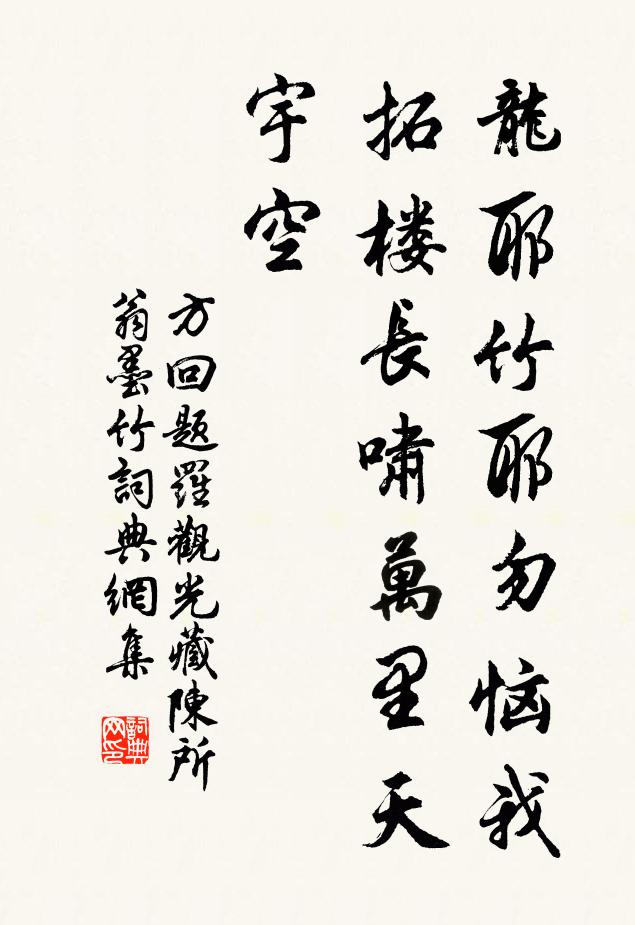 龍耶竹耶勿恼我
拓楼長嘯萬里天
宇空
方回题羅觀光藏陳所
翁墨竹詞典網集
詞典网印